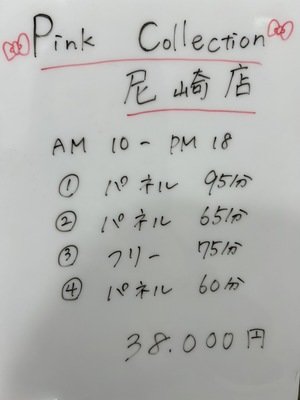 Pink Collection
尼崎店
AM 10 - PM 18
① パネル 95分
② パネル 65分
③ フリー 75分
④ パネル 60分
38.000円